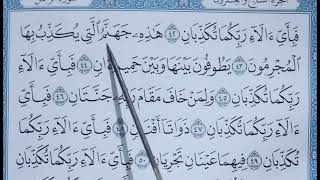 فَبِأَيِّ ءَالَآءِ رَبِّكُمَا تُكَذِّبَانِ ٤٢ هَٰذِهِۦ جَهَنَّمُ ٱلَّتِي يُكَذِّبُ بِهَا
ٱلْمُجْرِمُونَ ٤٣ يَطُوفُونَ بَيْنَهَا وَبَيْنَ حَمِيمٍ ءَانٍ ٤٤ فَبِأَيِّ
ءَالَآءِ رَبِّكُمَا تُكَذِّبَانِ ٤٥ وَلِمَنْ خَافَ مَقَامَ رَبِّهِۦ جَنَّتَانِ ٤٦ فَبِأَيِّ
ءَالَآءِ رَبِّكُمَا تُكَذِّبَانِ ٤٧ ذَوَاتَآ أَفْنَانٍ ٤٨ فَبِأَيِّ ءَالَآءِ رَبِّكُمَا
تُكَذِّبَانِ ٤٩ فِيهِمَا عَيْنَانِ تَجْرِيَانِ ٥٠ فَبِأَيِّ ءَالَآءِ رَبِّكُمَا تُكَذِّبَانِ